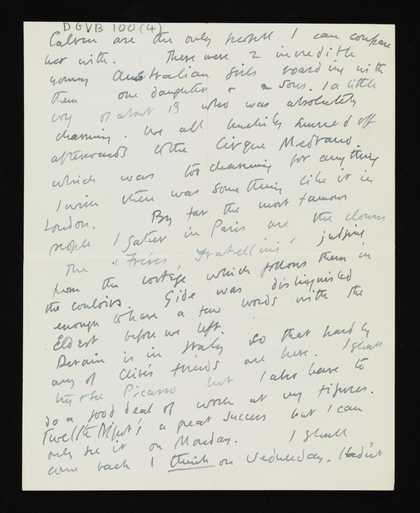 DGVB 100(4)
Calvin are the only people I can compare
her with. There were 2 incredible
young Australian girls boarding with
them one daughter & a sons. (a little
boy of about 19 who was absolutely
charming. We all luckily turned off
afterwards to the Cirque Medrano
which was too charming for anything
I wish there was something like it in
London. By far the most famous
people I gather in Paris are the clowns
The "Frères Fratellini" judging
from the cortège which follows them in
the couloirs. Gide was distinguished
enough to have a few words with the
Eldest before we left.
Derain is in Italy so that hardly
any of Clive's friends are here. I shall
see Picasso but I also have to
do a good deal of work at my figures.
Twelfth Night's a great success but I can
only see it on Monday. I shall
come back I think on Wednesday. Hadn't